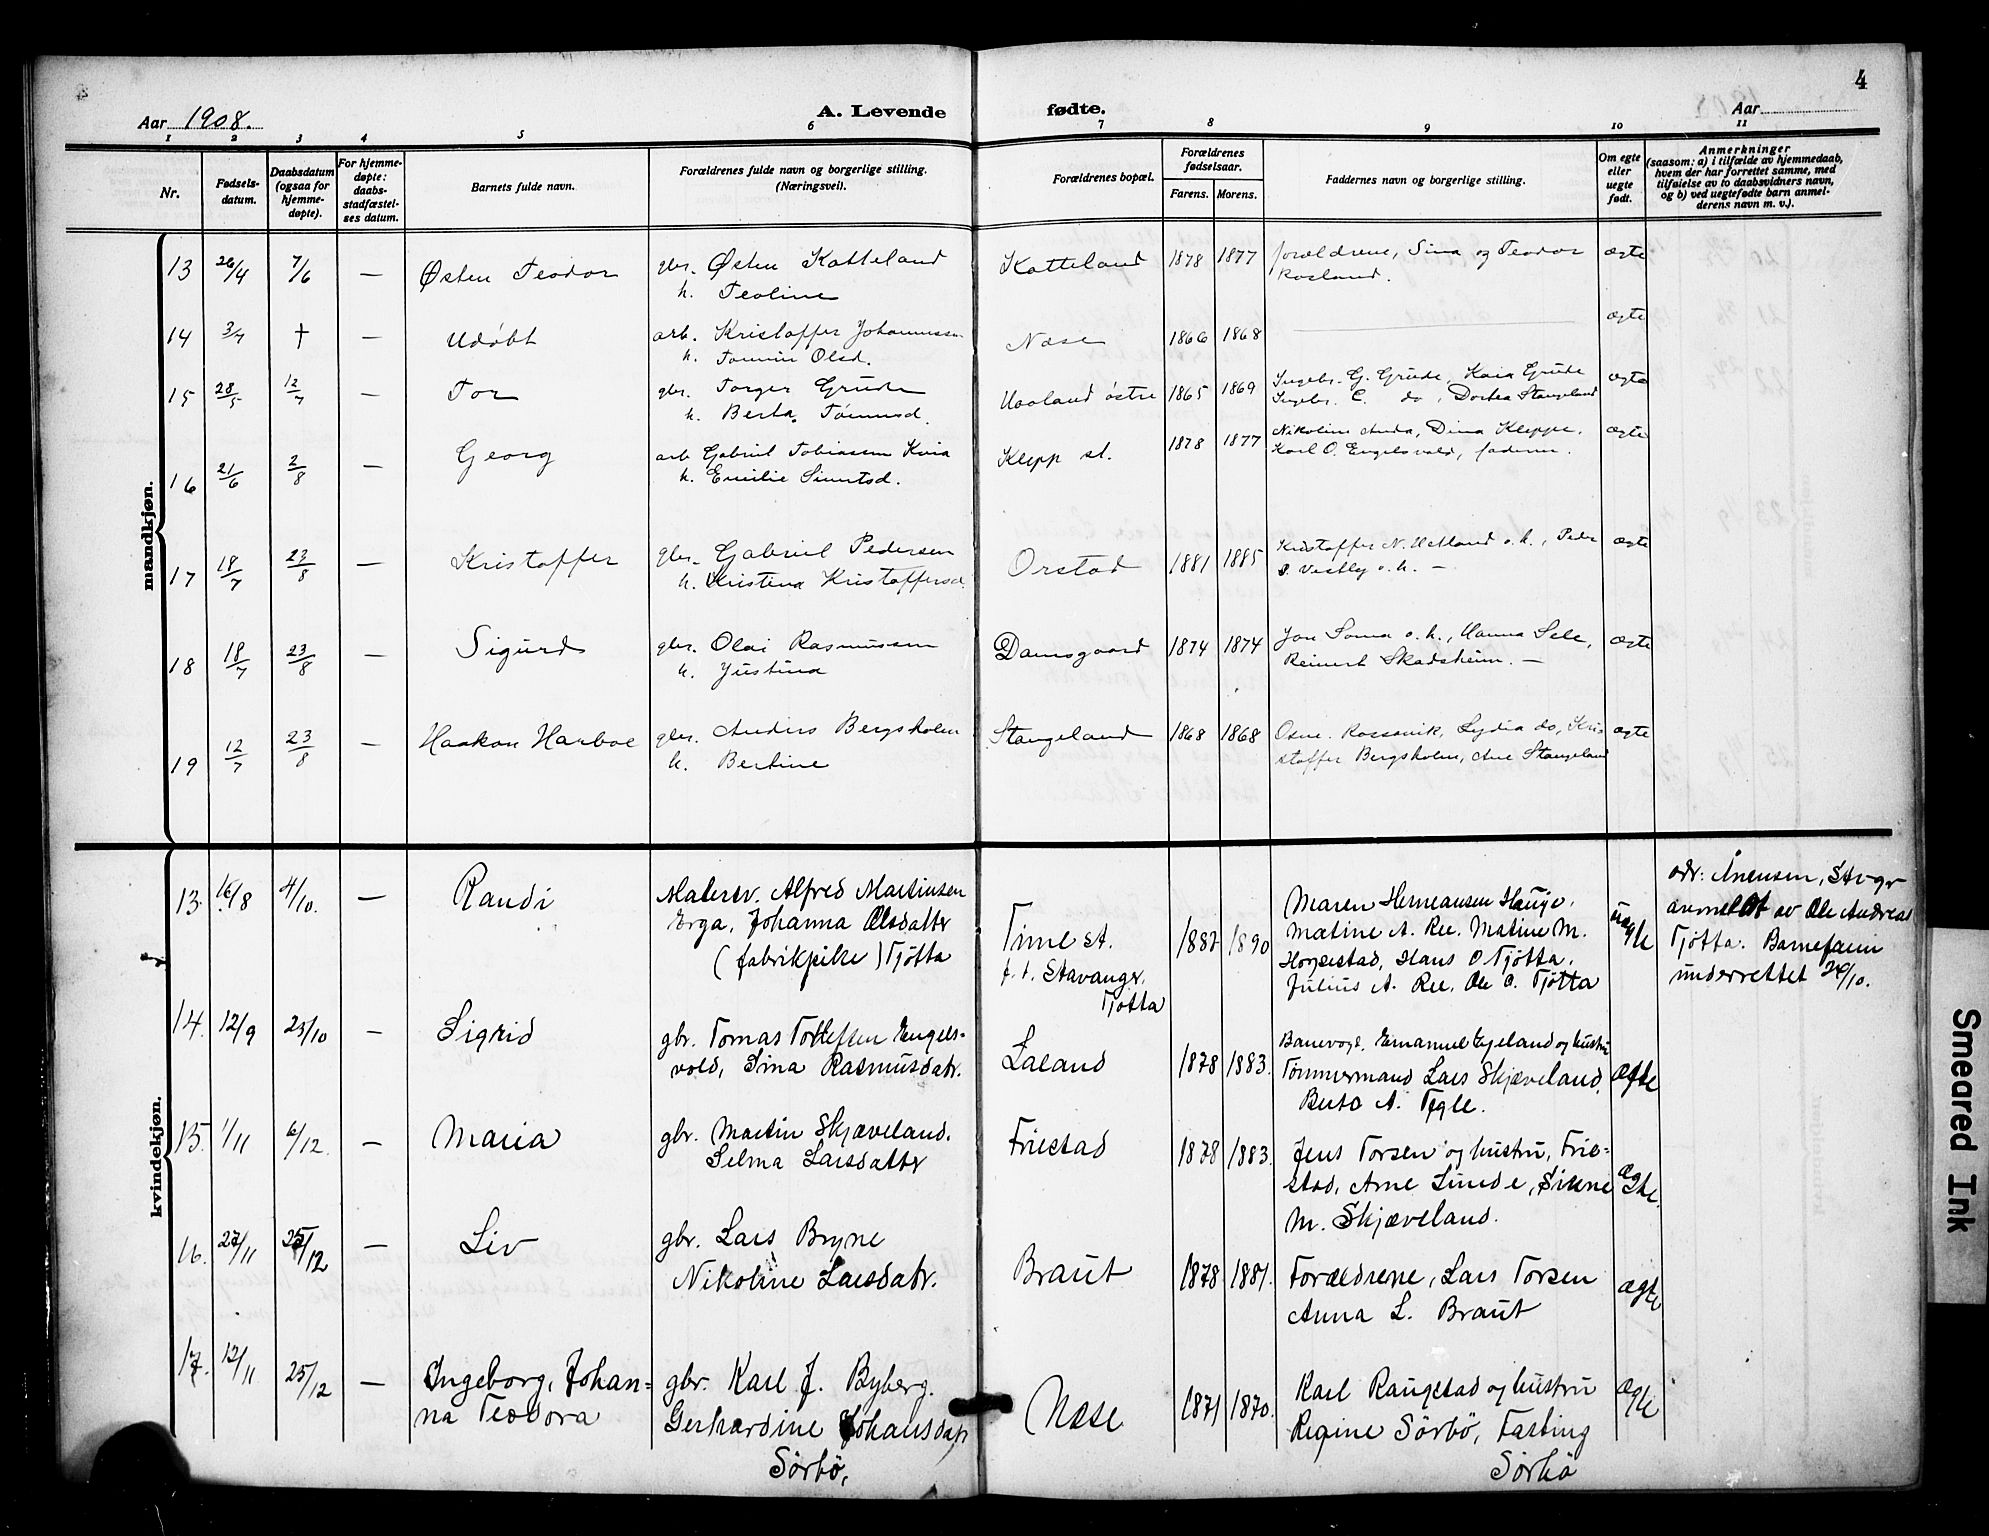 4
Aar 1908.
A. Levende fødte.
Aar
1 2 3 4 5 6 7 8 9 10 11
Nr.
Fødsels-
datum.
Daabsdatum
(ogsaa for
hjemme-
døpte).
For hjemme-
døpte:
daabs-
stadfæstel-
ses datum.
Barnets fulde navn.
Forældrenes fulde navn og borgerlige stilling.
(Næringsvei).
Forældrenes bopæl.
Forældrenes
fødselsaar.
Farens. Morens.
Faddernes navn og borgerlige stilling.
Om egte
eller
uegte
født.
Anmerkninger
(saasom: a) i tilfælde av hjemmedaab,
hvem der har forrettet samme, med
tilføielse av to daabsvidners navn,
og b) ved uegtefødte barn anmel-
derens navn m. v.).
mandkjøn.
13 26/4 7/6 — Østen Teodor
gbr. Østen Katteland
h. Teoline
Katteland 1878 1877
forældrene, Sina og Teodor
Rosland.
ægte
14 3/7 † — Udøbt
arb. Kristoffer Johannessen
h. Olsd.
Næse 1866 1868
ægte
15 28/5 12/7 — Tor
gbr. Torger Grude
h. Berta
østre 1865 1869
Ingebr. G. Grude, Kaia Grude
Ingebr. C. do, Dortea Stangeland
ægte
16 21/6 2/8 — Georg
arb Gabriel Tobiassen Kvia
h. Emilie
Klepp st. 1878 1877
Nikoline Anda, Dina Kleppe,
Karl O. Engelsvold, faderen.
ægte
17 18/7 23/8 — Kristoffer
gbr. Gabriel Pedersen
h. Kristina Kristoffersd.
Orstad 1881 1885
Kristoffer N. o. h., Peder
S. Vestly o. h. —
ægte
18 18/7 23/8 — Sigurd
gbr. Olai Rasmussen
h. Justina
Damsgaard 1874 1874
Jon Soma o. h., Hanna Sele,
Reinert Skadsheim. —
ægte
19 12/7 23/8 — Haakon Harboe
gbr. Anders Bergsholm
h. Bertine
Stangeland 1868 1868
Rossavik, Lydia do, Kri-
stoffer Bergsholm, Ane Stangeland
ægte
kvindekjøn.
13. 16/8 4/10. — Randi
Malersv. Alfred Martinsen
Erga, Johanna Olsdatter
(fabrikpike) Tjøtta
Time st.
f. t. Stavanger,
Tjøtta
1882 1890
Maren Hermansen Hauge,
Matine A. Ree. Matine M.
Horpestad, Hans O Tjøtta,
Julius A. Ree, Ole O. Tjøtta
uægte
adr: Stvgr
anmeldt av Ole Andreas
Tjøtta. Barnefaren
underrettet 24/10.
14. 12/9 25/10 — Sigrid
gbr. Tomas Tollefsen Engels-
vold, Sina Rasmusdatr.
Laland 1878 1883.
Banevogt. Emanuel Egeland og hustru
Tømmermand Lars Skjæveland,
Berta A. Tegle.
ægte
15. 1/11 6/12. — Maria
gbr. Martin Skjæveland,
Selma Larsdatter
Friestad 1878 1883.
Jens Torsen og hustru, Frie=
stad, Arne Linde, Sirene
M. Skjæveland.
ægte.
16. 22/11 25/12 — Liv
gbr. Lars Bryne
Nikoline Larsdatr.
Braut 1878 1881.
Forældrene, Lars Torsen
Anna L. Braut
ægte
17. 12/11 25/12 — Ingeborg, Johan=
na Teodora
gbr. Karl J. Byberg.
Gerhardine Johansdatr
Sörbö,
Næse 1871 1870.
Karl Raugstad og hustru
Regine Sörbö, Tasting
Sörbö
ægte
Smeared Ink